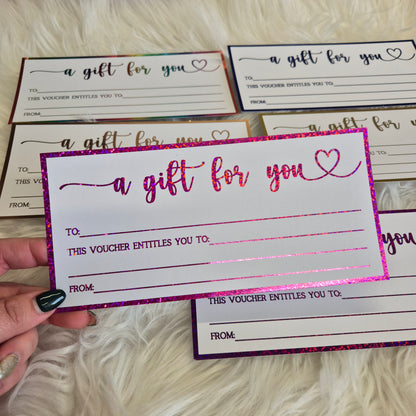 a gift for you
TO:
THIS VOUCHER ENTITLES YOU TO:
FROM:
a gift for you
TO:
a gift for you
THIS VOUCHER ENTITLES YOU TO:
FROM:
a gift for you
TO:
FROM:
a gift for you
a gift for you
TO:
THIS VOUCHER ENTITLES YOU TO:
FROM:
you
ENTITLES YOU TO:
FROM: